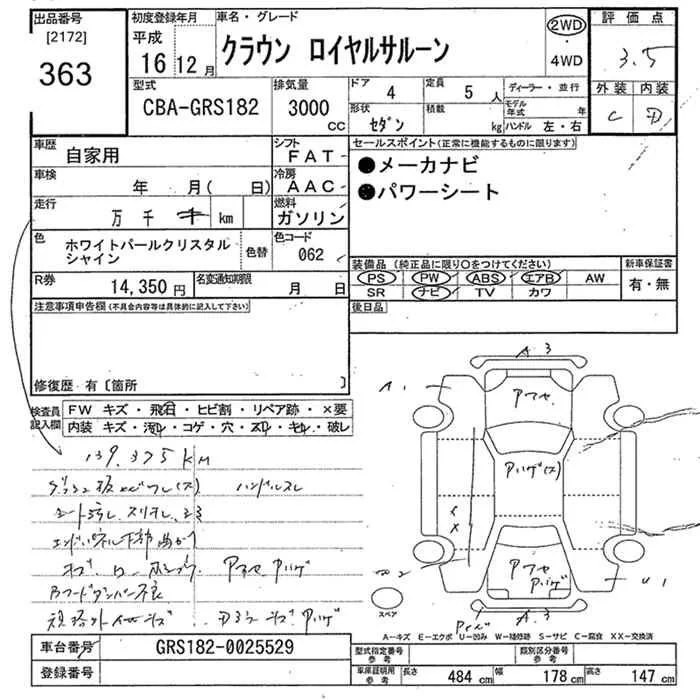 出品番号
[2172]
363
初度登録年月
平成
16 12月
車名・グレード
クラウン ロイヤルサルーン
2WD
・
4WD
評価点
3.5
外装 内装
C D
型式
CBA-GRS182
排気量
3000
CC
ドア
4
定員
5 人
ディーラー・並行
形状
セダン
積載
kg
モデル年式 年
ハンドル 左・右
車歴
自家用
シフト
FAT
セールスポイント(正常に機能するものに限ります)
●メーカナビ
●パワーシート
車検
年 月( 日)
冷房
AAC
走行
万 千 km
燃料
ガソリン
色
ホワイトパールクリスタル
シャイン
色替
色コード
062
装備品 (純正品に限り○をつけてください)
PS PW ABS エアB AW
SR ナビ TV カワ
新車保証書
有・無
R券
14,350 円
名変通知期限
月 日
後日品
注意事項申告欄(不具合内容等は具体的に記入して下さい)
修復歴 有〔箇所 〕
検査員
記入欄
FW キズ・飛石・ヒビ割・リペア跡・×要
内装 キズ・汚れ・コゲ・穴・スレ・キレ・破レ
139,375KM
A3
A1
アセヤ
アリゲ(ス)
ハンドルスレ
アセヤ アリゲ
U1
A3
スペア
A-キズ E-エクボ U-凹み W-補修跡 S-サビ C-腐食 XX-交換済
車台番号
GRS182-0025529
登録番号
型式指定番号
参考
類別区分番号
参考
車庫証明用
参考
長さ 484 cm
幅 178 cm
高さ 147 cm